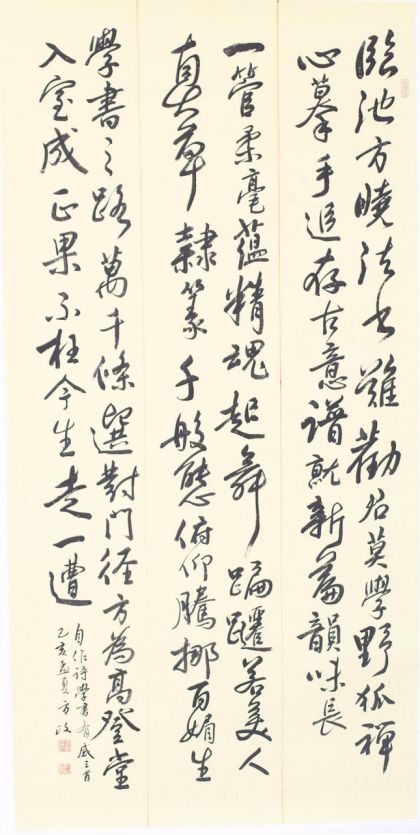 臨池方曉法书難勸君莫學野狐禅
心摹手追存古意譜就新篇韻味長
一管柔毫蕴精魂起舞蹁躚若美人
真行草隸篆千般態俯仰騰挪百媚生
學書之路萬千條選對門径方為髙登堂
入室成正果不枉今生走一遭
自作詩學書有感三首
乙亥孟夏方政